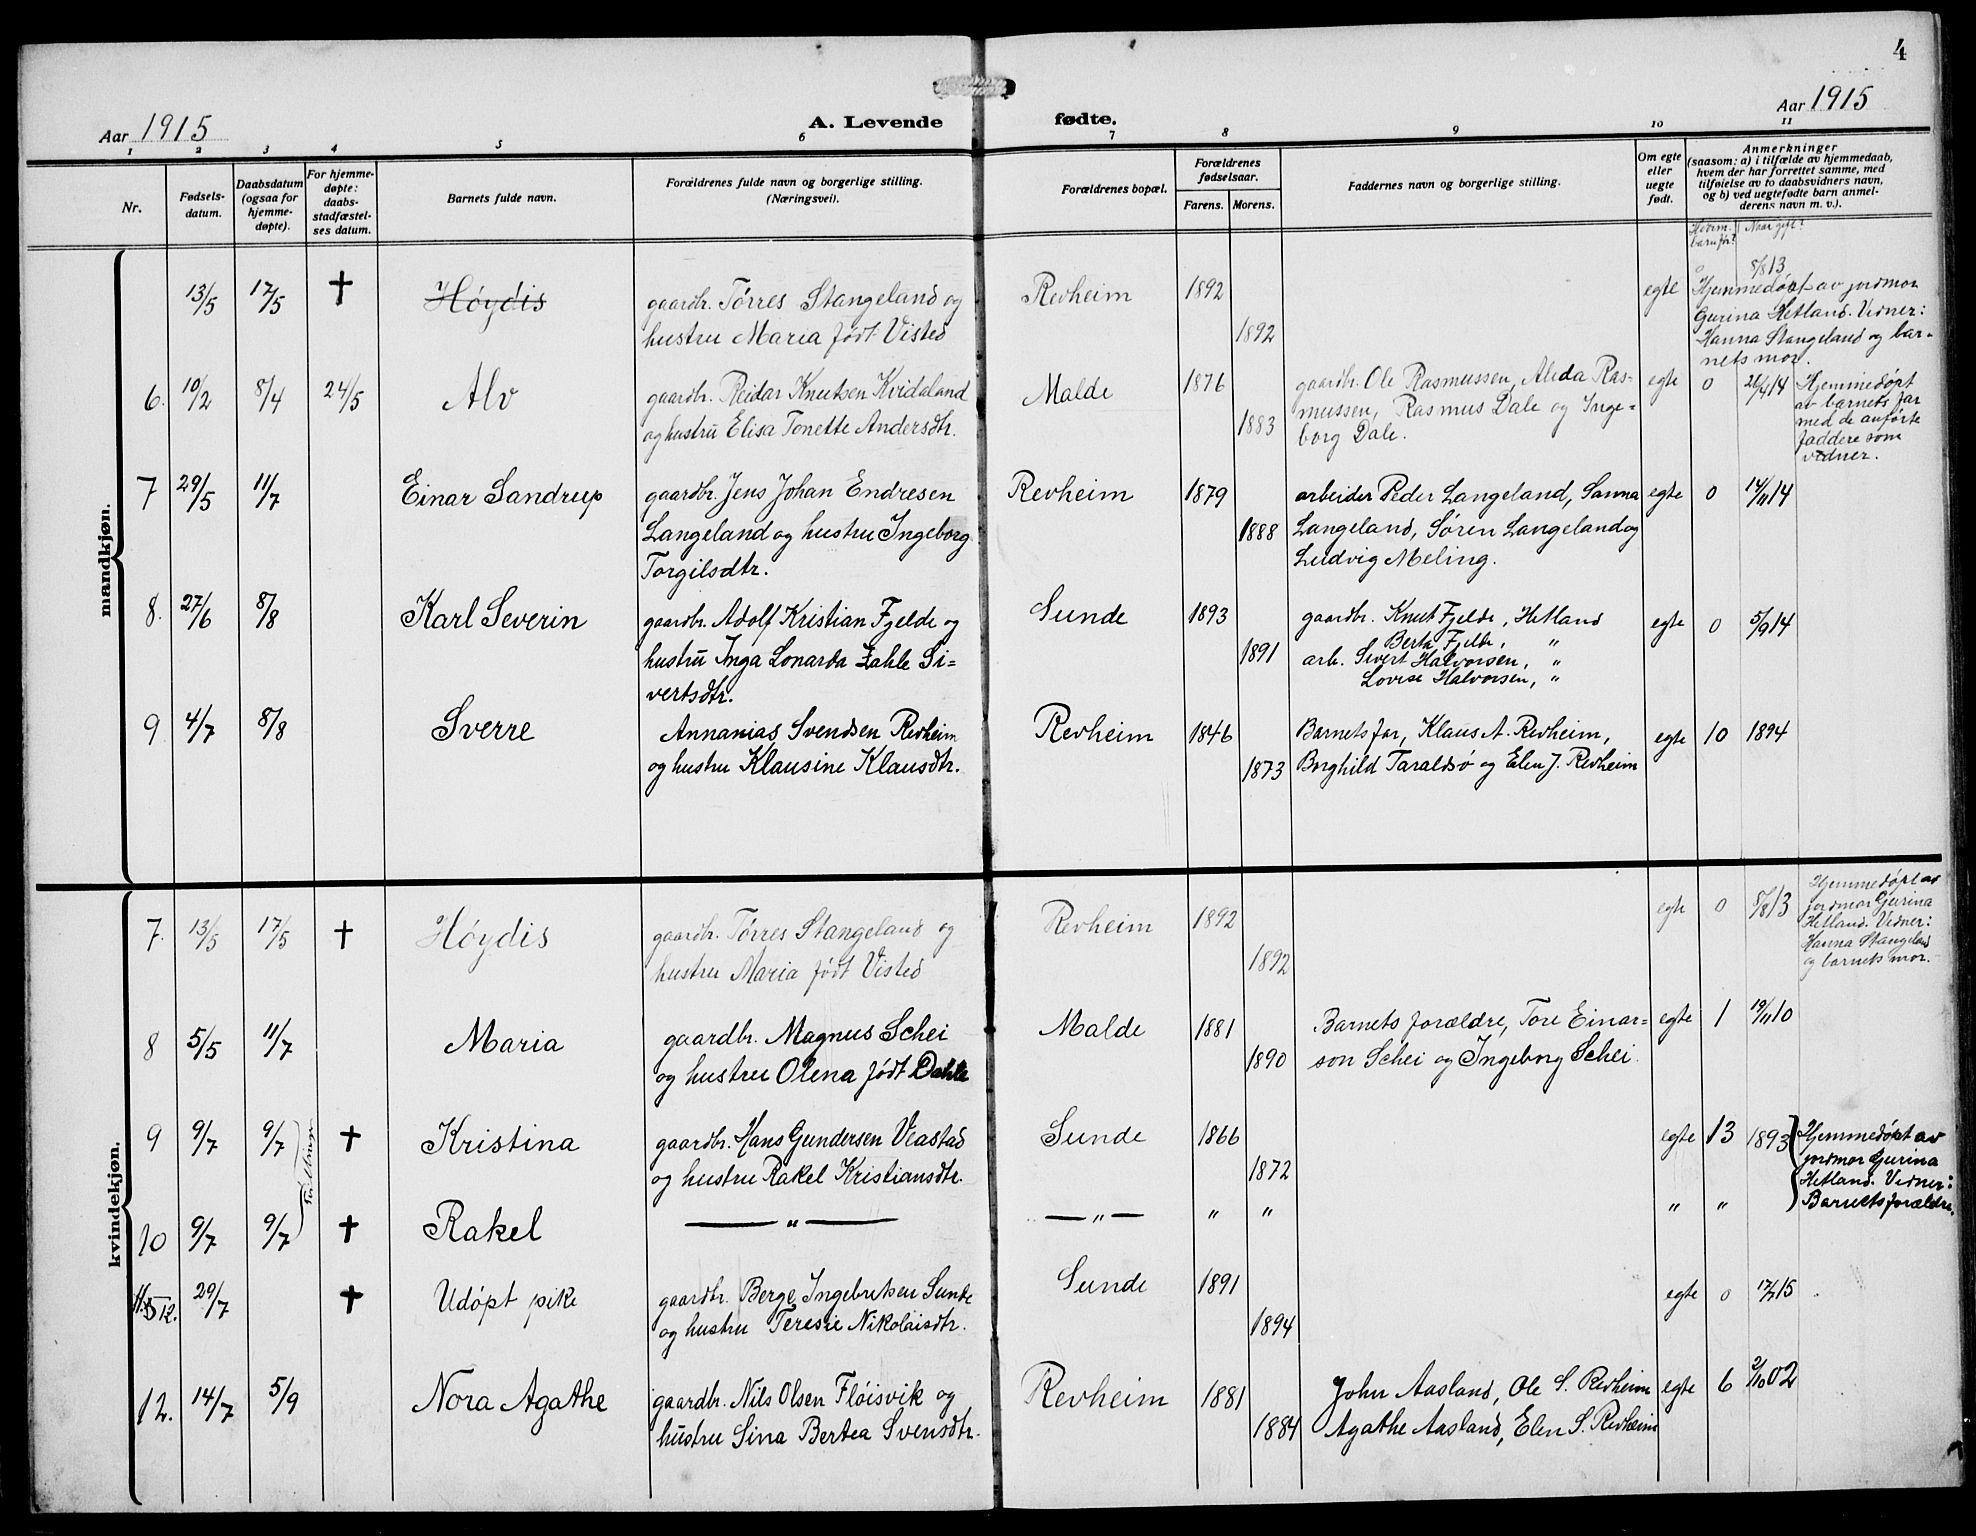 4
Aar 1915
A. Levende fødte.
Aar 1915
1 2 3 4 5 6 7 8 9 10 11
Nr.
Fødsels-
datum.
Daabsdatum
(ogsaa for
hjemme-
døpte).
For hjemme-
døpte:
daabs-
stadfæstel-
ses datum.
Barnets fulde navn.
Forældrenes fulde navn og borgerlige stilling.
(Næringsvei).
Forældrenes bopæl.
Forældrenes
fødselsaar.
Farens. Morens.
Faddernes navn og borgerlige stilling.
Om egte
eller
uegte
født.
Anmerkninger
(saasom: a) i tilfælde av hjemmedaab,
hvem der har forrettet samme, med
tilføielse av to daabsvidners navn,
og b) ved uegtefødte barn anmel-
derens navn m. v.).
Naar gift?
mandkjøn.
13/5 17/5 † Höydis gaardbr. Törres Stangeland og Revheim 1892 egte 0 8/8 13
hustru Maria födt Visted 1892
Hjemmedöpt av jordmor
Gurina Hetland. Vidner:
Hanna Stangeland og bar-
nets mor.
6. 10/2 8/4 24/5 Alv gaardbr. Reidar Knutsen Kvidaland Malde 1876 gaardbr. Ole Rasmussen, Alida Ras- egte 0 26/4 14 Hjemmedöpt
og hustru Elisa Tonette Andersdtr. 1883 mussen, Rasmus Dale og Inge=
borg Dale.
av barnets far
med de anförte
faddere som
vidner.
7 29/5 11/7 Einar Sandrup gaardbr. Jens Johan Endresen Revheim 1879 arbeider Peder Langeland, Sanna egte 0 14/11 14
Langeland og hustru Ingeborg 1888 Langeland, Sören Langeland og
Torgilsdtr. Ludvig Meling.
8. 27/6 8/8 Karl Severin gaardbr. Adolf Kristian Fjelde og Sunde 1893 gaardbr. Knut Fjelde, Hetland egte 0 5/9 14
Berta Fjelde, "
hustru Inga Lonarda Zahle Si= 1891 arb. Sivert Halvorsen, "
vertsdtr. Lovise Halvorsen, "
9 4/7 8/8 Sverre Annanias Svendsen Revheim Revheim 1846 Barnets far, Klaus A. Revheim, egte 10 1894
og hustru Klausine Klausdtr. 1873 Borghild Taraldsö og Elen J. Revheim
kvindekjøn.
7. 13/5 17/5 † Höydis gaardbr. Törres Stangeland og Revheim 1892 egte 0 8/8 13
hustru Maria födt Visted 1892
Hjemmedöpt av
jordmor Gurina
Hetland. Vidner:
Hanna Stangeland
og barnets mor.
8 5/5 11/7 Maria gaardbr. Magnus Schei Malde 1881 Barnets forældre, Tore Einar= egte 1 19/11 10
og hustru Olena födt Dahle 1890 son Schei og Ingeborg Schei.
9 9/7 9/7 † Kristina gaardbr. Hans Gundersen Veastad Sunde 1866 egte 13 1893
og hustru Rakel Kristiansdtr. 1872
Hjemmedöpt av
jordmor Gurina
Hetland. Vidner:
Barnets forældre.
Tvillinge
10 9/7 9/7 † Rakel — " — — " — " " " "
12. 29/7 † Udöpt pike gaardbr. Berge Ingebretsen Sunde Sunde 1891 egte 0 17/7 15
og hustru Teresie Nikolaisdtr. 1894
12. 14/7 5/9 Nora Agathe gaardbr. Nils Olsen Flöisvik og Revheim 1881 John Aasland, Ole S. Revheim egte 6 2/10 02
hustru Sina Bertea Svensdtr. 1884 Agathe Aasland, Elen S. Revheim